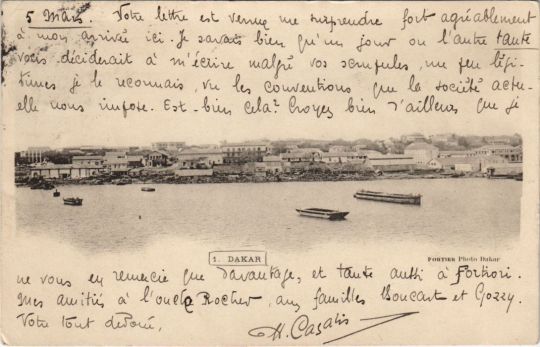 5 Mars. Votre lettre est venue me surprendre fort agréablement
à mon arrivée ici. Je savais bien qu'un jour ou l'autre tante
vous déciderait à m'écrire malgré vos scrupules, un peu légi-
times je le reconnais, vu les conventions que la société actu-
elle nous impose. Est-bien cela? Croyez bien d'ailleurs que je
1. DAKAR
FORTIER Photo Dakar
ne vous en remercie que davantage, et tante aussi à
Mes amitiés à l'oncle Rocher, aux familles Boucart et Gozzy.
Votre tout dévoué,
H. Casalis